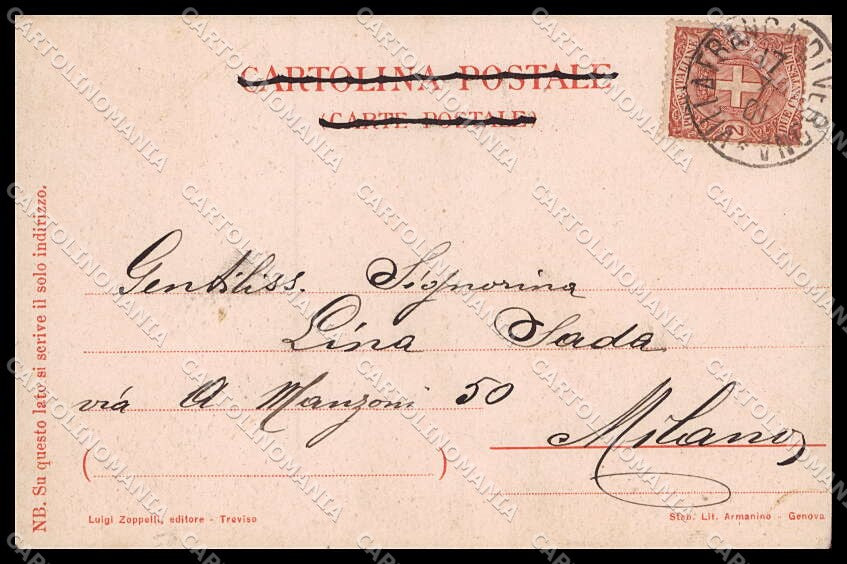 CARTOLINA POSTALE
(CARTE POSTALE)
VILLAFRANCA DI VERONA
17
01
NB. Su questo lato si scrive il solo indirizzo.
Gentiliss. Signorina
Lina Sada
via A Manzoni 50
Milano
Luigi Zoppelli, editore - Treviso
Stab. Lit. Armanino - Genova
CARTOLINOMANIA